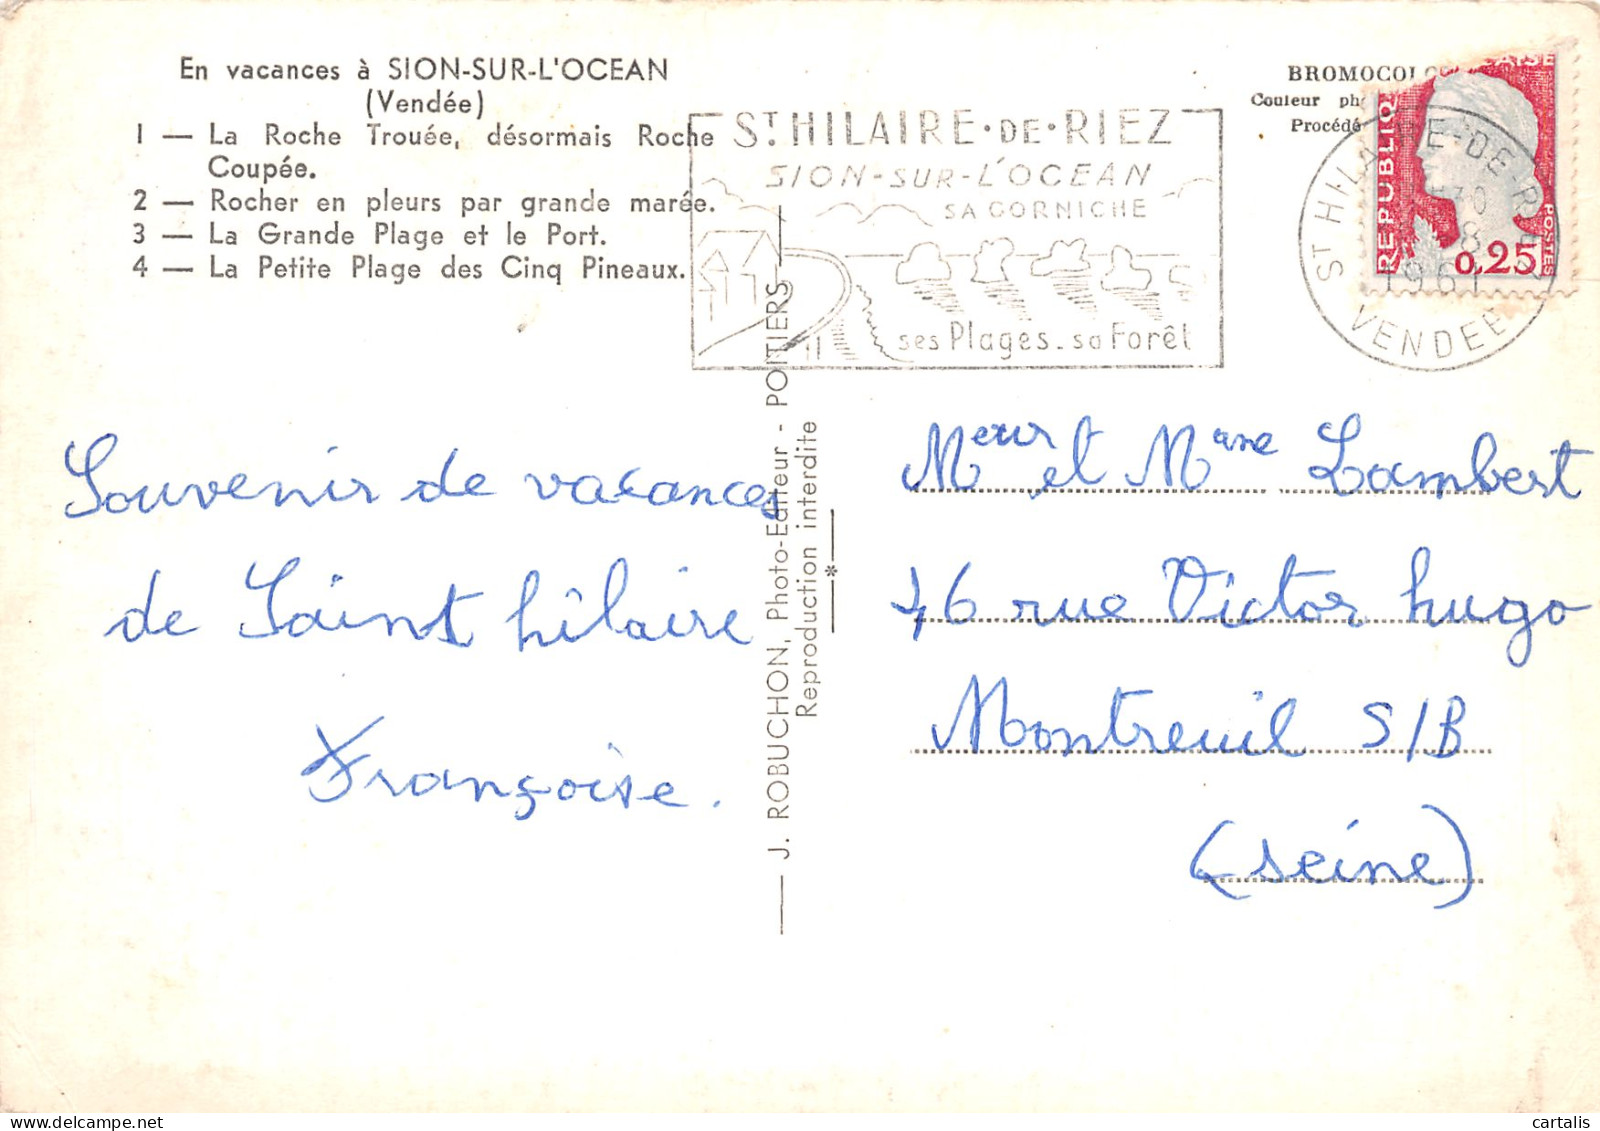 En vacances à SION-SUR-L'OCEAN
(Vendée)
1 — La Roche Trouée, désormais Roche
Coupée.
2 — Rocher en pleurs par grande marée.
3 — La Grande Plage et le Port.
4 — La Petite Plage des Cinq Pineaux.
ST HILAIRE·DE·RIEZ
SION-SUR-L'OCEAN
SA CORNICHE
ses Plages - sa Forêt
BROMOCOLO
Couleur
Procédé
REPUBLIQ
POSTES
0,25
ST HILAIRE-DE-R
8
1961
VENDEE
Souvenir de vacances
de Saint hilaire
Françoise.
J. ROBUCHON, Photo-Editeur - POITIERS
Reproduction interdite
*
Meur et Mme Lambert
46 rue Victor hugo
Montreuil S/B
(seine)
cartalis